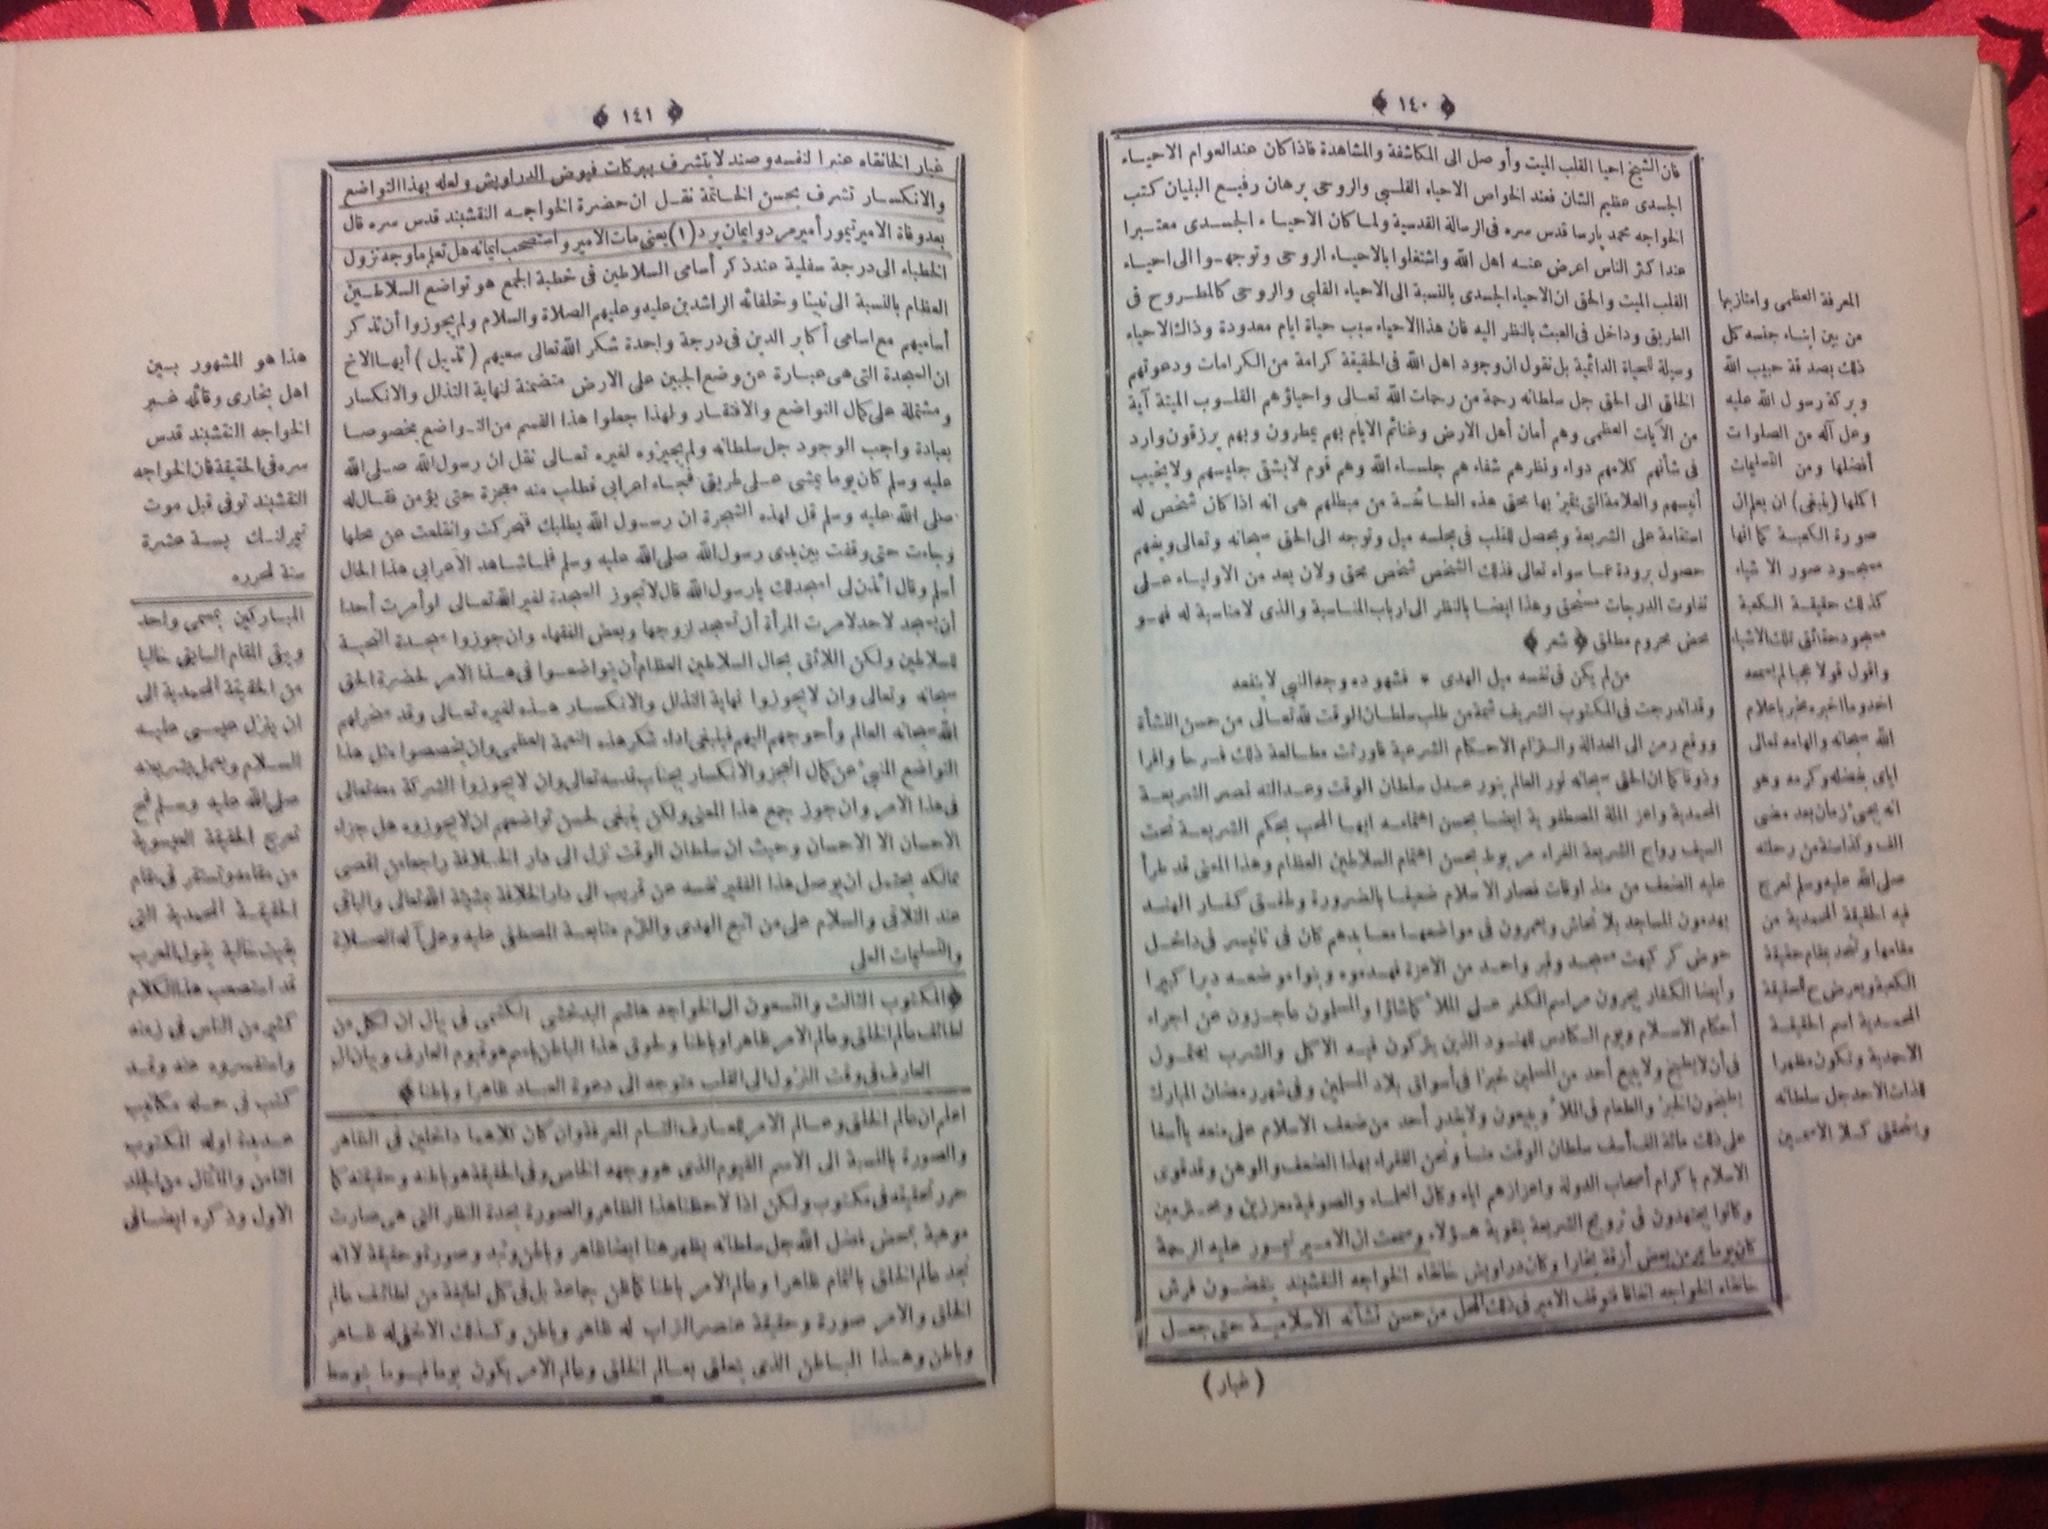 ﴿ ١٤٠ ﴾
فان الشيخ احيا القلب الميت وأوصل الى المكاشفة والمشاهدة فاذا كان عند العوام الاحياء
الجسدى عظيم الشان فعند الخواص الاحياء القلبى والروحى برهان رفيع البنيان كتب
الخواجه محمد پارسا قدس سره فى الرسالة القدسية ولما كان الاحياء الجسدى معتبرا
عند اكثر الناس اعرض عنه اهل الله واشتغلوا بالاحياء الروحى وتوجهوا الى احياء
القلب الميت والحق ان الاحياء الجسدى بالنسبة الى الاحياء القلبى والروحى كالمطروح فى
الطريق وداخل فى العبث بالنظر اليه فان هذا الاحياء سبب حياة ايام معدودة وذاك الاحياء
وسيلة للحياة الدائمية بل نقول ان وجود اهل الله فى الحقيقة كرامة من الكرامات ودعوتهم
الخلق الى الحق جل سلطانه رحمة من رحمات الله تعالى واحياؤهم القلوب الميتة آية
من الآيات العظمى وهم أمان أهل الارض وغنائم الايام بهم يمطرون وبهم يرزقون وارد
فى شأنهم كلامهم دواء ونظرهم شفاء هم جلساء الله وهم قوم لا يشقى جليسهم ولا يخيب
أنيسهم والعلامة التى يتميز بها محق هذه الطائفة من مبطلهم هى انه اذا كان شخص له
استقامة على الشريعة ويحصل للقلب فى مجلسه ميل وتوجه الى الحق سبحانه وتعالى ويفهم
حصول برودة عما سواه تعالى فذلك الشخص شخص محق ولان يعد من الاولياء على
تفاوت الدرجات مستحق وهذا ايضا بالنظر الى ارباب المناسبة والذى لا مناسبة له فهو
محض محروم مطلق ﴿ شعر ﴾
من لم يكن فى نفسه ميل الهدى * فشهوده وجه النبي لا ينفعه
وقد اندرجت فى المكتوب الشريف شمة من طلب سلطان الوقت لله تعالى من حسن النشأة
ووقع رمز الى العدالة والتزام الاحكام الشرعية فاورثت مطالعة ذلك فرحا وافرا
وذوقا كما ان الحق سبحانه نور العالم بنور عدل سلطان الوقت وعدالته نصر الشريعة
المحمدية واعز الملة المصطفوية ايضا بحسن اهتمامه ايها المحب بحكم الشريعة تحت
السيف رواج الشريعة الغراء مربوط بحسن اهتمام السلاطين العظام وهذا المعنى قد طرأ
عليه الضعف من منذ اوقات فصار الاسلام ضعيفا بالضرورة وطفق كفار الهند
يهدمون المساجد بلا تحاش ويعمرون فى مواضعها معابدهم كان فى تانيسر فى داخل
حوض كركهيت مسجد وقبر واحد من الاعزة فهدموه وبنوا موضعه ديرا كبيرا
وأيضا الكفار يجرون مراسم الكفر على الملأ كما شاؤا والمسلمون عاجزون عن اجراء
أحكام الاسلام ويوم الكادس للهنود الذين يتركون فيه الاكل والشرب يحتمون
فى أن لا يطبخ ولا يبيع أحد من المسلمين خبزا فى أسواق بلاد المسلمين وفى شهر رمضان المبارك
يطبخون الخبز والطعام فى الملأ ويبيعون ولا يقدر أحد من ضعف الاسلام على منعه يا أسفا
على ذلك مائة الف أسف سلطان الوقت منا ونحن الفقراء بهذا الضعف والوهن وقد قوى
الاسلام باكرام أصحاب الدولة واعزازهم اياه وكان العلماء والصوفية معززين ومحترمين
وكانوا يجتهدون فى ترويج الشريعة بتقوية هؤلاء وسمعت ان الامير تيمور عليه الرحمة
كان يوما يمر من بعض أزقة بخارا وكان دراويش خانقاه الخواجه النقشبند ينفضون فرش
خانقاه الخواجه اتفاقا فتوقف الامير فى ذلك المحل من حسن نشأته الاسلامية حتى جعل
( غبار )
المعرفة العظمى وامتاز بها
من بين ابناء جنسه كل
ذلك بصدقة حبيب الله
وبركة رسول الله عليه
وعلى آله من الصلوات
أفضلها ومن التسليمات
اكملها (ينبغى) ان يعلم ان
صورة الكعبة كما انها
مسجود صور الاشياء
كذلك حقيقة الكعبة
مسجود حقائق تلك الاشياء
واقول قولا عجبا لم يسمعه
احد وما اخبر به مخبر باعلام
الله سبحانه والهامه تعالى
اياى بفضله وكرمه وهو
انه يجئ زمان بعد مضى
الف وكذا سنة من رحلته
صلى الله عليه وسلم تعرج
فيه الحقيقة المحمدية من
مقامها وتتحد بمقام حقيقة
الكعبة ويعرض ح للحقيقة
المحمدية اسم الحقيقة
الاحمدية وتكون مظهرا
للذات الاحد جل سلطانه
ويتحقق كلا الاسمين
﴿ ١٤١ ﴾
غبار الخانقاه عنبرا لنفسه وصندلا يتشرف ببركات فيوض الدراويش ولعله بهذا التواضع
والانكسار تشرف بحسن الخاتمة نقل ان حضرة الخواجه النقشبند قدس سره قال
بعد وفاة الامير تيمور أمير مرد وايمان برد (١) يعنى مات الامير واستصحب ايمانه هل تعلم ما وجه نزول
الخطباء الى درجة سفلية عند ذكر أسامى السلاطين فى خطبة الجمع هو تواضع السلاطين
العظام بالنسبة الى نبينا وخلفائه الراشدين عليه وعليهم الصلاة والسلام ولم يجوزوا أن تذكر
أساميهم مع اسامى أكابر الدين فى درجة واحدة شكر الله تعالى سعيهم ( تذييل ) أيها الاخ
ان السجدة التى هى عبارة عن وضع الجبين على الارض متضمنة لنهاية التذلل والانكسار
ومشتملة على كمال التواضع والافتقار ولهذا جعلوا هذا القسم من التواضع مخصوصا
بعبادة واجب الوجود جل سلطانه ولم يجيزوه لغيره تعالى نقل ان رسول الله صلى الله
عليه وسلم كان يوما يمشى على طريق فجاء اعرابى فطلب منه معجزة حتى يؤمن فقال له
صلى الله عليه وسلم قل لهذه الشجرة ان رسول الله يطلبك فتحركت وانقلعت عن محلها
وجاءت حتى وقفت بين يدى رسول الله صلى الله عليه وسلم فلما شاهد الاعرابى هذا الحال
أسلم وقال ائذن لى اسجد لك يا رسول الله قال لا تجوز السجدة لغير الله تعالى لو أمرت أحدا
أن يسجد لاحد لامرت المرأة أن تسجد لزوجها وبعض الفقهاء وان جوزوا سجدة التحية
للسلاطين ولكن اللائق بحال السلاطين العظام أن يتواضعوا فى هذا الامر لحضرة الحق
سبحانه وتعالى وان لا يجوزوا نهاية التذلل والانكسار هذه لغيره تعالى وقد سخر لهم
الله سبحانه العالم وأحوجهم اليهم فينبغى اداء شكر هذه النعمة العظمى وان يخصصوا مثل هذا
التواضع المنبئ عن كمال العجز والانكسار بجناب قدسه تعالى وان لا يجوزوا الشركة معه تعالى
فى هذا الامر وان جوز جمع هذا المعنى ولكن ينبغى لحسن تواضعهم ان لا يجوزوه هل جزاء
الاحسان الا الاحسان وحيث ان سلطان الوقت نزل الى دار الخلافة راجعا من اقصى
ممالكه يحتمل ان يوصل هذا الفقير نفسه عن قريب الى دار الخلافة بمشيئة الله تعالى والباقى
عند التلاقى والسلام على من اتبع الهدى والتزم متابعة المصطفى عليه وعلى آله الصلاة
والتسليمات العلى
﴿ المكتوب الثالث والتسعون الى الخواجه هاشم البدخشى الكشمى فى بيان ان لكل من
لطائف عالم الخلق وعالم الامر ظاهرا وباطنا ولحوق هذا الباطن باسم هو قيوم العارف وبيان ال
العارف فى وقت النزول الى القلب متوجه الى دعوة العباد ظاهرا وباطنا ﴾
اعلم ان عالم الخلق وعالم الامر للعارف التام المعرفة وان كان كلاهما داخلين فى الظاهر
والصورة بالنسبة الى الاسم القيوم الذى هو وجهه الخاص وفى الحقيقة هو باطنه وحقيقته كما
حرر تحقيقه فى مكتوب ولكن اذا لاحظنا هذا الظاهر والصورة بحدة النظر التى هى صارت
موهبة بمحض فضل الله جل سلطانه يظهر هنا ايضا ظاهر وباطن وتبد وصورة وحقيقة لا انه
تجد عالم الخلق بالتمام ظاهرا وعالم الامر باطنا كما ظن جماعة بل فى كل لطيفة من لطائف عالم
الخلق والامر صورة وحقيقة عنصر التراب له ظاهر وباطن وكذلك الاخفى له ظاهر
وباطن وهذا الباطن الذى يتعلق بعالم الخلق وعالم الامر يكون يوما فيوما بتوسط
هذا هو المشهور بين
اهل بخارى وقائله غير
الخواجه النقشبند قدس
سره فى الحقيقة فان الخواجه
النقشبند توفى قبل موت
تيمرلنك بستة عشرة
سنة لمحرره
المباركين بمسمى واحد
ويبقى المقام السابق خاليا
من الحقيقة المحمدية الى
ان ينزل عيسى عليه
السلام ويعمل بشريعته
صلى الله عليه وسلم فح
تعرج الحقيقة العيسوية
من مقامه وتستقر فى مقام
الحقيقة المحمدية التى
بقيت خالية يقول المعرب
قد استصعب هذا الكلام
كثير من الناس فى زمنه
واستفسروه عنه وقد
كتب فى حله مكاتيب
عديدة اوله المكتوب
الثامن والمأتان من الجلد
الاول وذكره ايضا فى